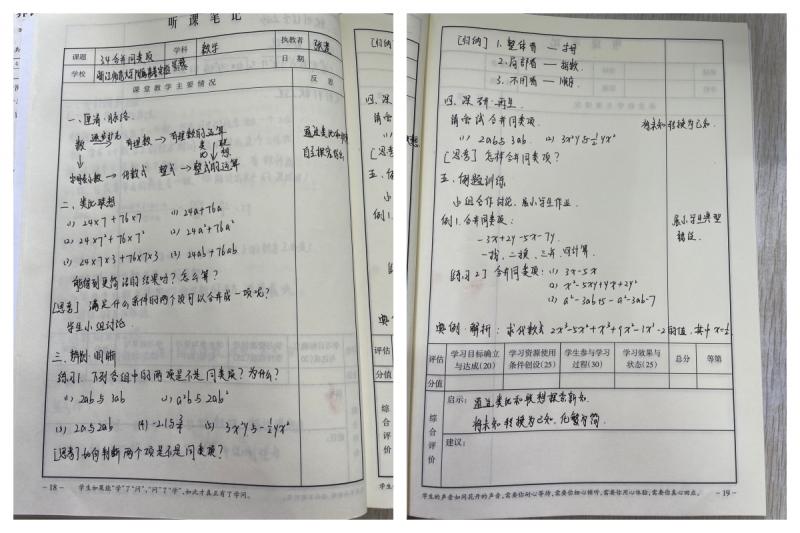 听课笔记
课题 3.4合并同类项 学科 数学 执教者
学校 日期
课堂教学主要情况 反思
一、厘清·脉络
数 → 有理数 → 有理数的运算
类比 联想
字母表示数 → 代数式 整式 → 整式的运算
二、类比联想
(1) 24×7+76×7 (1) 24a+76a
(2) 24×7²+76×7² (2) 24a²+76a²
(3) 24×7×3+76×7×3 (3) 24ab+76ab
能得到更简洁的结果吗?怎么算?
[思考] 满足什么条件的两个项可以合并成一项呢?
学生小组讨论
三、辨别·明晰
练习1. 下列各组中的两项是不是同类项?为什么?
(1) 2ab与3ab (2) a²b与2ab²
(3) 2a与2ab (4) -2.1与3/4 (5) 3x²y与-½yx²
[思考]如何判断两个项是不是同类项?
-18- 学生如果能“学”了“问”,“问”了“学”,如此才真正有了学问。
[归纳] 1. 整体看 — 字母
2. 局部看 — 指数
3. 不用看 — 顺序
四、深研·再生
请尝试合并同类项 将未知转换为已知.
(1) 2ab与3ab (2) 3x²y与-½yx²
[思考] 怎样合并同类项?
五、例题训练
小组合作讨论. 展示学生作业.
例1. 合并同类项: 展示学生典型
错误.
-3x+2y-5x-7y
一找、二换、三并、四计算.
[练习2] 合并同类项: (1) 3x-5x
(2) x²-5xy+yx+2y²
(3) a²-3ab+5-a²-3ab-7
典例·解析: 求代数式 2x³-5x²+x³+9x²-1x³-2的值, 其中x=½
评估 学习目标确立与达成(20) 学习资源使用条件创设(25) 学生参与学习过程(30) 学习效果与状态(25) 总分 等第
分值
综合评价 启示: 通过类比和联想探索新知.
将未知转换为已知. 化繁为简.
建议:
学生的声音如同花开的声音,需要你耐心等待,需要你细心倾听,需要你用心体验,需要你真心回应。 -19-